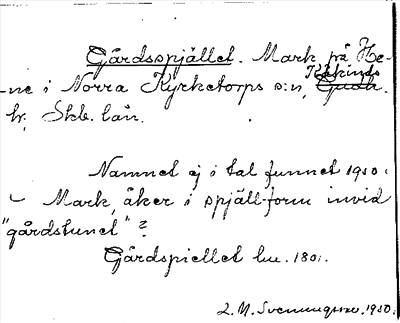 Gårdsspjället. Mark på He-
Kåkinds
ne i Norra Kyrketorps s:n, Gudh.
hr, Skb. län.
Namnet ej i tal funnet 1950.
Mark, åker i spjäll-form invid
"gårdstunet"?
Gårdspiellet lm. 180.
L. M. Svenungsson. 1950.